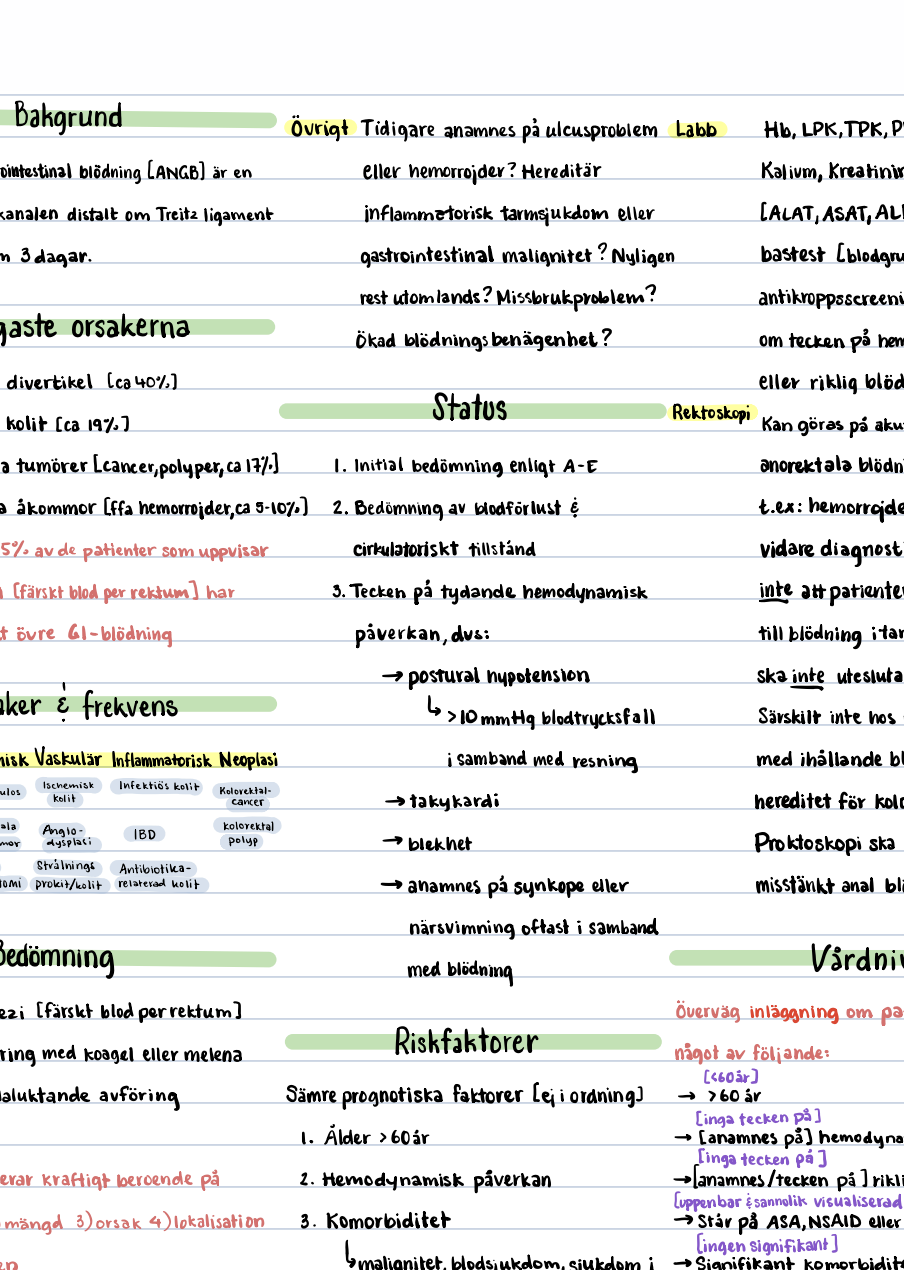 Bakgrund
ointestinal blödning [ANGB] är en
kanalen distalt om Treitz ligament
m 3 dagar.
gaste orsakerna
divertikel [ca 40%]
kolit [ca 19%]
a tumörer [cancer, polyper, ca 17%]
a åkommor [ffa hemorrojder, ca 5-10%]
5% av de patienter som uppvisar
[färskt blod per rektum] har
t övre GI-blödning
aker & frekvens
misk Vaskulär Inflammatorisk Neoplasi
ulos Ischemisk kolit Infektiös kolit Kolorektal-cancer
ala mor Angio-dysplasi IBD kolorektal polyp
tomi Strålnings prokit/kolit Antibiotika-relaterad kolit
Bedömning
ezi [färskt blod per rektum]
ring med koagel eller melena
aluktande avföring
erar kraftigt beroende på
mängd 3) orsak 4) lokalisation
en
Övrigt Tidigare anamnes på ulcusproblem
eller hemorrojder? Hereditär
inflammatorisk tarmsjukdom eller
gastrointestinal malignitet? Nyligen
rest utomlands? Missbrukproblem?
Ökad blödningsbenägenhet?
Status
1. Initial bedömning enligt A-E
2. Bedömning av blodförlust &
cirkulatoriskt tillstånd
3. Tecken på tydande hemodynamisk
påverkan, dvs:
→ postural hypotension
↳ >10 mmHg blodtrycksfall
i samband med resning
→ takykardi
→ blekhet
→ anamnes på synkope eller
närsvimning oftast i samband
med blödning
Riskfaktorer
Sämre prognotiska faktorer [ej i ordning]
1. Ålder >60 år
2. Hemodynamisk påverkan
3. Komorbiditet
↳ malignitet, blodsjukdom, sjukdom i
Labb Hb, LPK, TPK, P
Kalium, Kreatinin
[ALAT, ASAT, AL
bastest [blodgru
antikroppsscreeni
om tecken på hem
eller riklig blöd
Rektoskopi Kan göras på aku
anorektala blödni
t.ex: hemorrojde
vidare diagnosti
inte att patienten
till blödning i tar
ska inte utesluta
Särskilt inte hos
med ihållande bl
hereditet för kolo
Proktoskopi ska
misstänkt anal bl
Vårdniv
Överväg inläggning om pa
något av följande:
[<60 år]
→ >60 år
[inga tecken på]
→ [anamnes på] hemodyna
[inga tecken på]
→ [anamnes/tecken på] rikli
[uppenbar & sannolik visualiserad
→ Står på ASA, NSAID eller
[ingen signifikant]
→ Signifikant komorbidit